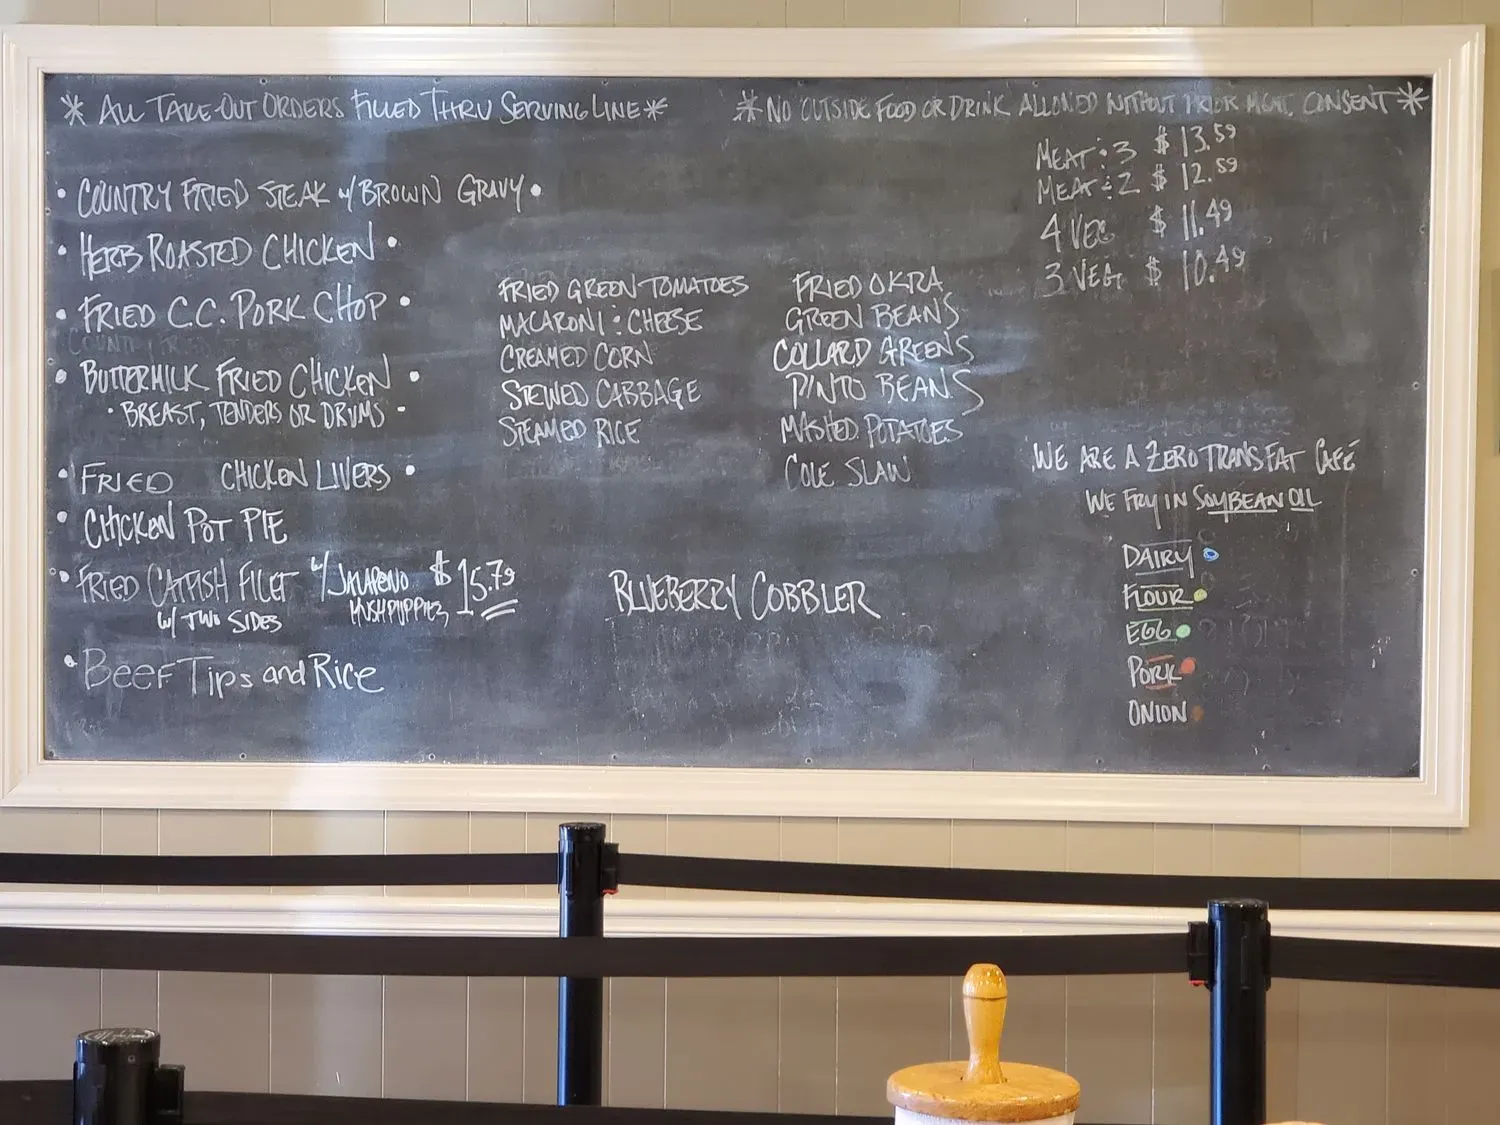 * ALL TAKE-OUT ORDERS FILLED THRU SERVING LINE *
* NO OUTSIDE FOOD OR DRINK ALLOWED WITHOUT PRIOR MGMT. CONSENT *
• COUNTRY FRIED STEAK w/ BROWN GRAVY •
• HERB ROASTED CHICKEN •
• FRIED C.C. PORK CHOP •
• BUTTERMILK FRIED CHICKEN •
• BREAST, TENDERS OR DRUMS •
• FRIED CHICKEN LIVERS •
• CHICKEN POT PIE
• FRIED CATFISH FILET w/ JALAPENO $15.79
w/ TWO SIDES HUSHPUPPIES
• Beef Tips and Rice
FRIED GREEN TOMATOES
MACARONI : CHEESE
CREAMED CORN
STEWED CABBAGE
STEAMED RICE
FRIED OKRA
GREEN BEANS
COLLARD GREENS
PINTO BEANS
MASHED POTATOES
COLE SLAW
BLUEBERRY COBBLER
MEAT : 3 $13.59
MEAT : 2 $12.59
4 VEG $11.49
3 VEG $10.49
WE ARE A ZERO TRANS FAT CAFÉ
WE FRY IN SOYBEAN OIL
DAIRY
FLOUR
EGG
PORK
ONION